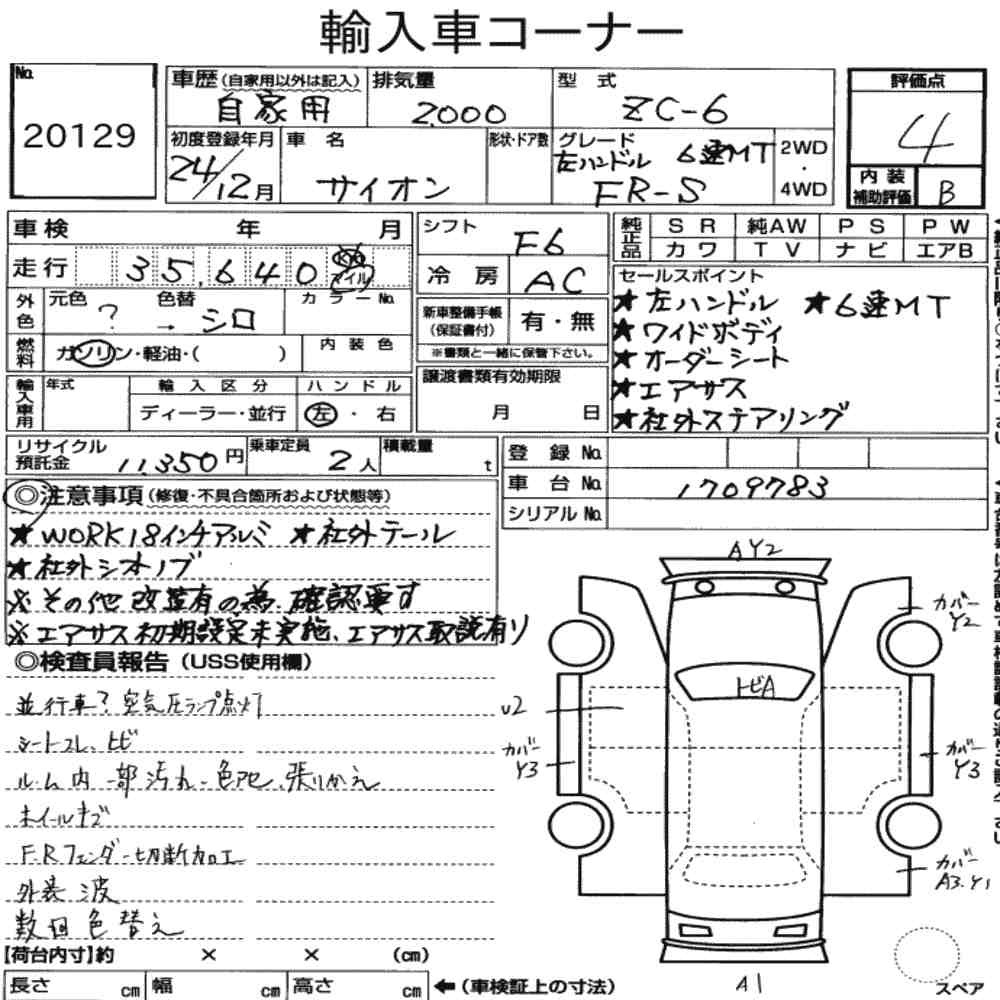 輸入車コーナー
No. 20129
車歴(自家用以外は記入) 自家用
排気量 2,000
型式 ZC-6
評価点 4
内装補助評価 B
初度登録年月 24/12月
車名 サイオン
形状・ドア数
グレード 左ハンドル 6速MT FR-S
2WD・4WD
車検 年 月
走行 35,640 マイル
外色 元色 ? 色替 → シロ カラーNo.
燃料 ガソリン・軽油・( ) 内装色
輸入車用 年式 輸入区分 ハンドル
ディーラー・並行 左・右
シフト F6
冷房 AC
新車整備手帳(保証書付) 有・無
※書類と一緒に保管下さい。
譲渡書類有効期限
月 日
純正品 SR 純AW PS PW
カワ TV ナビ エアB
セールスポイント
★左ハンドル ★6速MT
★ワイドボディ
★オーダーシート
★エアサス
★社外ステアリング
リサイクル預託金 11,350円
乗車定員 2人
積載量 t
登録No.
車台No. 1709783
シリアルNo.
◎注意事項(修復・不具合箇所および状態等)
★WORK18インチアルミ ★社外テール
★社外シフトノブ
※その他改造有の為、確認要す
※エアサス初期設定未実施、エアサス取説有り
◎検査員報告(USS使用欄)
並行車? 空気圧ランプ点灯
シートスレ、トビ
ルーム内一部汚れ、色アセ、張りかえ
ホイールキズ
F.Rフェンダー切断加工
外装波
数回色替え
AY2
カバー Y2
トビA
U2
カバー Y3
カバー Y3
カバー A3.Y1
A1
スペア
【荷台内寸】約 × × (cm)
長さ cm 幅 cm 高さ cm ←(車検証上の寸法)